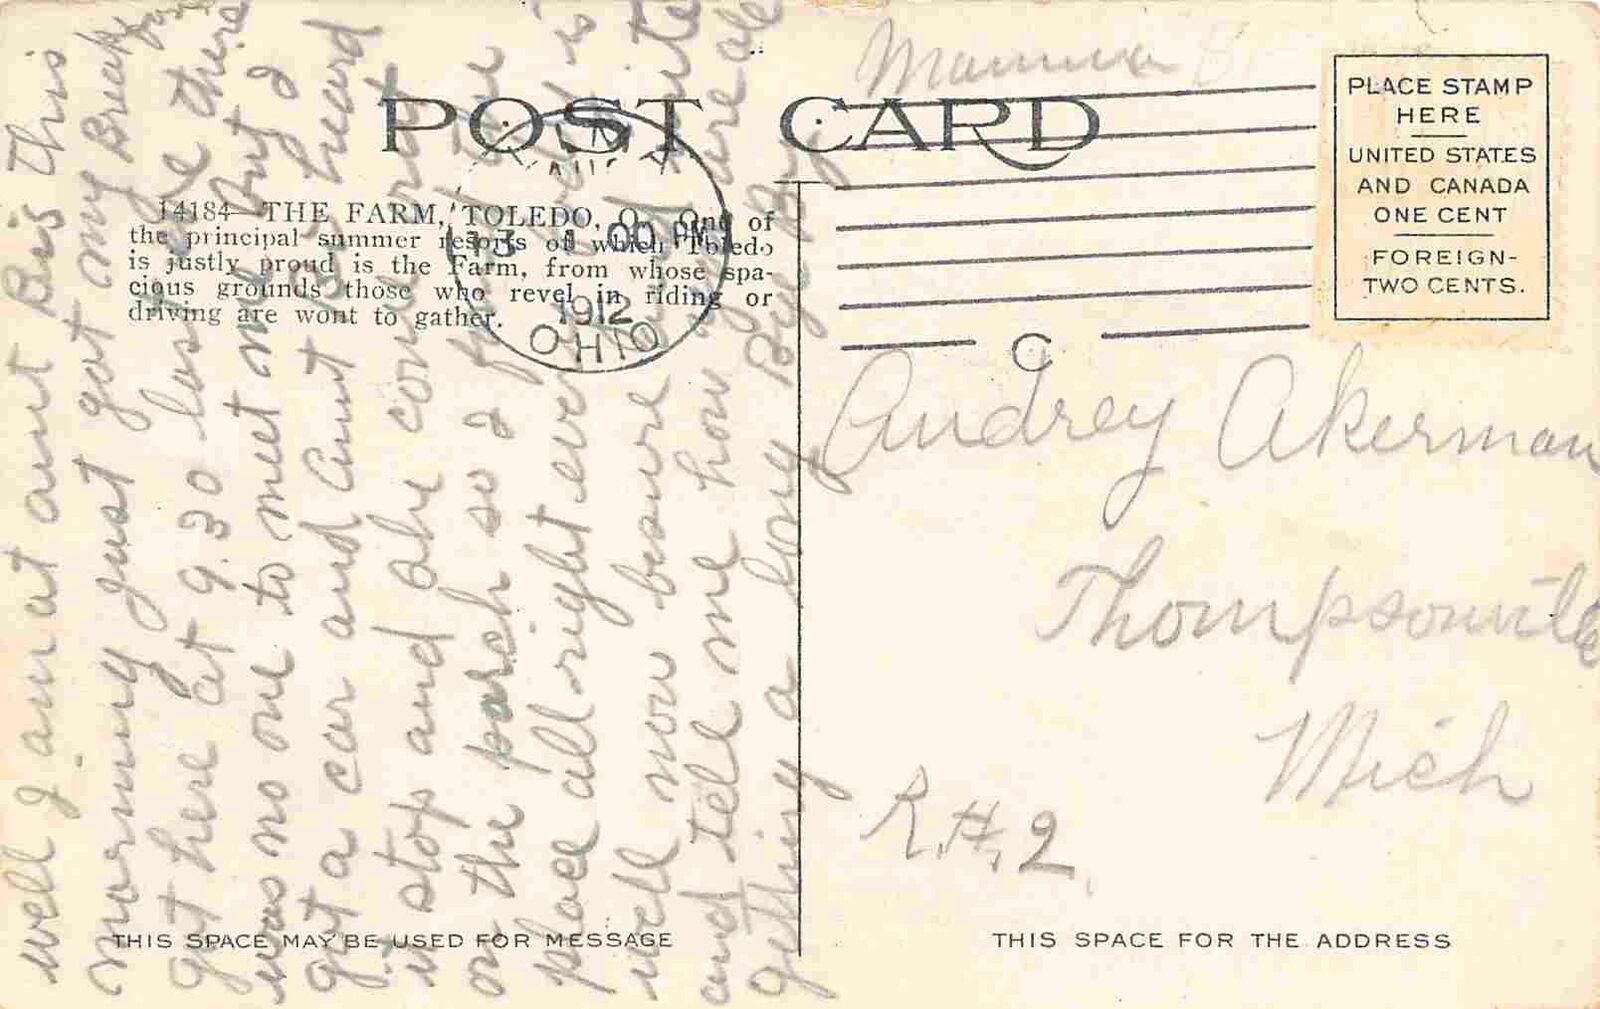 POST CARD
14184—THE FARM, TOLEDO, O. One of
the principal summer resorts of which Toledo
is justly proud is the Farm, from whose spa-
cious grounds those who revel in riding or
driving are wont to gather.
1 00 PM
1912
OHIO
C
PLACE STAMP
HERE
UNITED STATES
AND CANADA
ONE CENT
FOREIGN-
TWO CENTS.
well I am at aunt this
morning just got my Breakfast
got here at 9.30 last there
was no one to meet me But I
got a car and Aunt heard
it stop and she come right
on the porch so I
place all right
well now besure and write
and tell me how you are all
getting a long By By
Mamma
Audrey Akerman
Thompsonville
Mich
R.#.2
THIS SPACE MAY BE USED FOR MESSAGE
THIS SPACE FOR THE ADDRESS